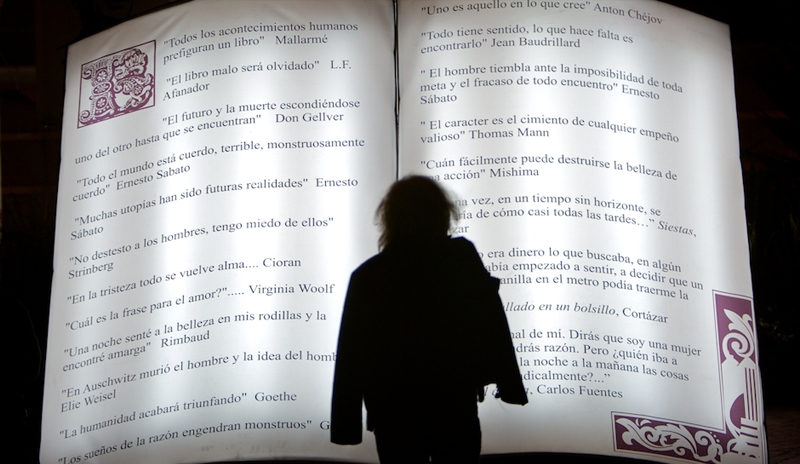 "Todos los acontecimientos humanos
prefiguran un libro" Mallarmé
"El libro malo será olvidado" L.F.
Afanador
"El futuro y la muerte escondiéndose
uno del otro hasta que se encuentran" Don Gellver
"Todo el mundo está cuerdo, terrible, monstruosamente
cuerdo" Ernesto Sabato
"Muchas utopías han sido futuras realidades" Ernesto
Sábato
"No destesto a los hombres, tengo miedo de ellos"
Strinberg
"En la tristeza todo se vuelve alma.... Cioran
"Cuál es la frase para el amor?"..... Virginia Woolf
"Una noche senté a la belleza en mis rodillas y la
encontré amarga" Rimbaud
"En Auschwitz murió el hombre y la idea del
Elie Weisel
"La humanidad acabará triunfando" Goethe
"Los sueños de la razón engendran monstruos"
"Uno es aquello en lo que cree" Anton Chéjov
"Todo tiene sentido, lo que hace falta es
encontrarlo" Jean Baudrillard
" El hombre tiembla ante la imposibilidad de toda
meta y el fracaso de todo encuentro" Ernesto
Sábato
" El caracter es el cimiento de cualquier empeño
valioso" Thomas Mann
"Cuán fácilmente puede destruirse la belleza de
acción" Mishima
vez, en un tiempo sin horizonte, se
de cómo casi todas las tardes…" Siestas,
era dinero lo que buscaba, en algún
empezado a sentir, a decidir un
en el metro podía traerme la
en un bolsillo, Cortázar
de mí. Dirás que soy una mujer
razón. Pero ¿quién iba a
la noche a la mañana las cosas
Carlos Fuentes